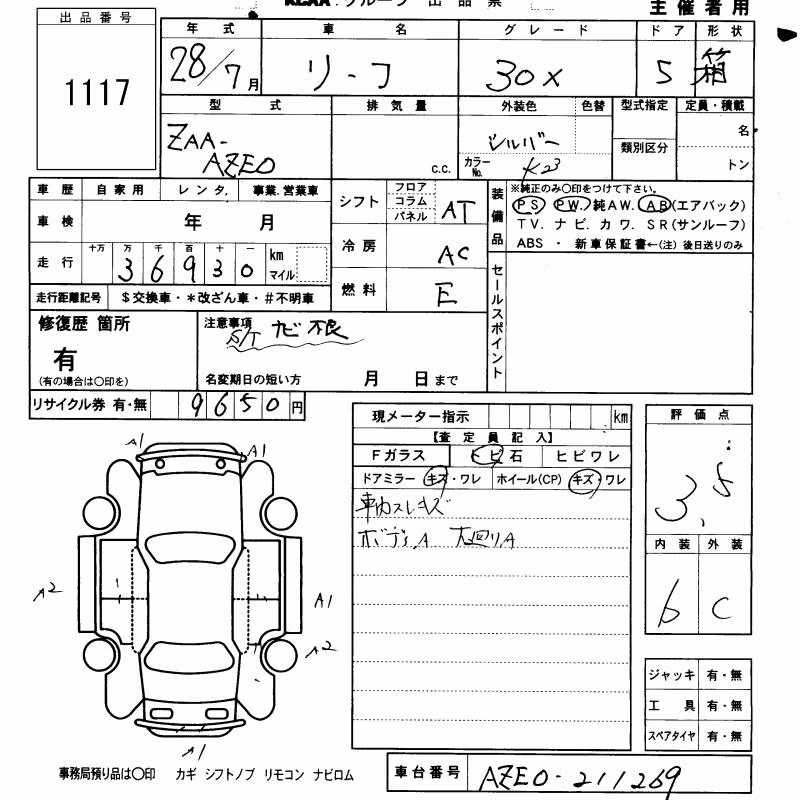 KCAA グループ 出品票
主催者用
出品番号
1117
年式 車名 グレード ドア 形状
28/7月 リーフ 30X 5 箱
型式 排気量 外装色 色替 型式指定 定員・積載
ZAA-AZEO c.c. シルバー カラーNo. K23 類別区分 名 トン
車歴 自家用 レンタ. 事業.営業車
車検 年 月
走行 十万 万 千 百 十 一 km マイル
36930
走行距離記号 $交換車・*改ざん車・#不明車
シフト フロア コラム パネル AT
冷房 AC
燃料 E
装備品
※純正のみ○印をつけて下さい。
PS PW. 純AW. AB(エアバック)
TV. ナビ. カワ. SR(サンルーフ)
ABS ・ 新車保証書←(注) 後日送りのみ
セールスポイント
修復歴 箇所
有
(有の場合は○印を)
注意事項
S/T ナビ不良
名変期日の短い方 月 日まで
リサイクル券 有・無 9650円
現メーター指示 km
【査定員記入】
Fガラス ヒビ石 ヒビワレ
ドアミラー キズ・ワレ ホイール(CP) キズ・ワレ
車内スレキズ
ボディA 大回りA
評価点
3.5
内装 外装
b C
A1 A1
A2 A1
A2
A1
ジャッキ 有・無
工具 有・無
スペアタイヤ 有・無
事務局預り品は○印 カギ シフトノブ リモコン ナビロム
車台番号 AZEO-211269